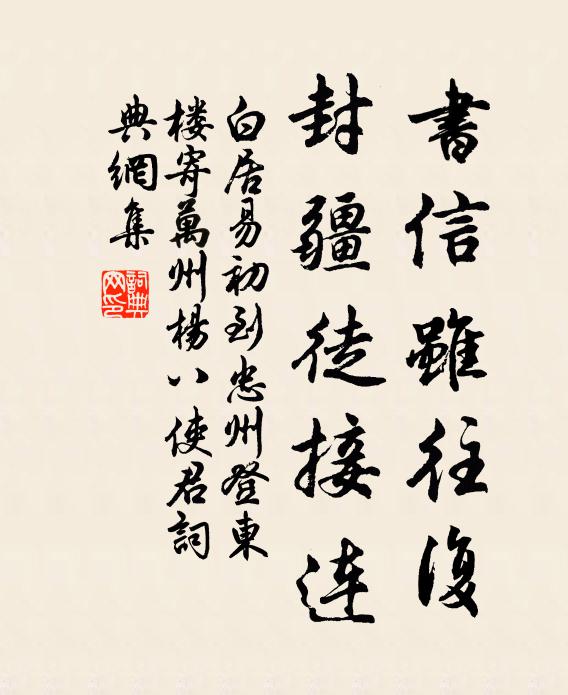 書信雖往復
封疆徒接连
白居易初到忠州登東
楼寄萬州楊八使君詞
典網集
詞典网印